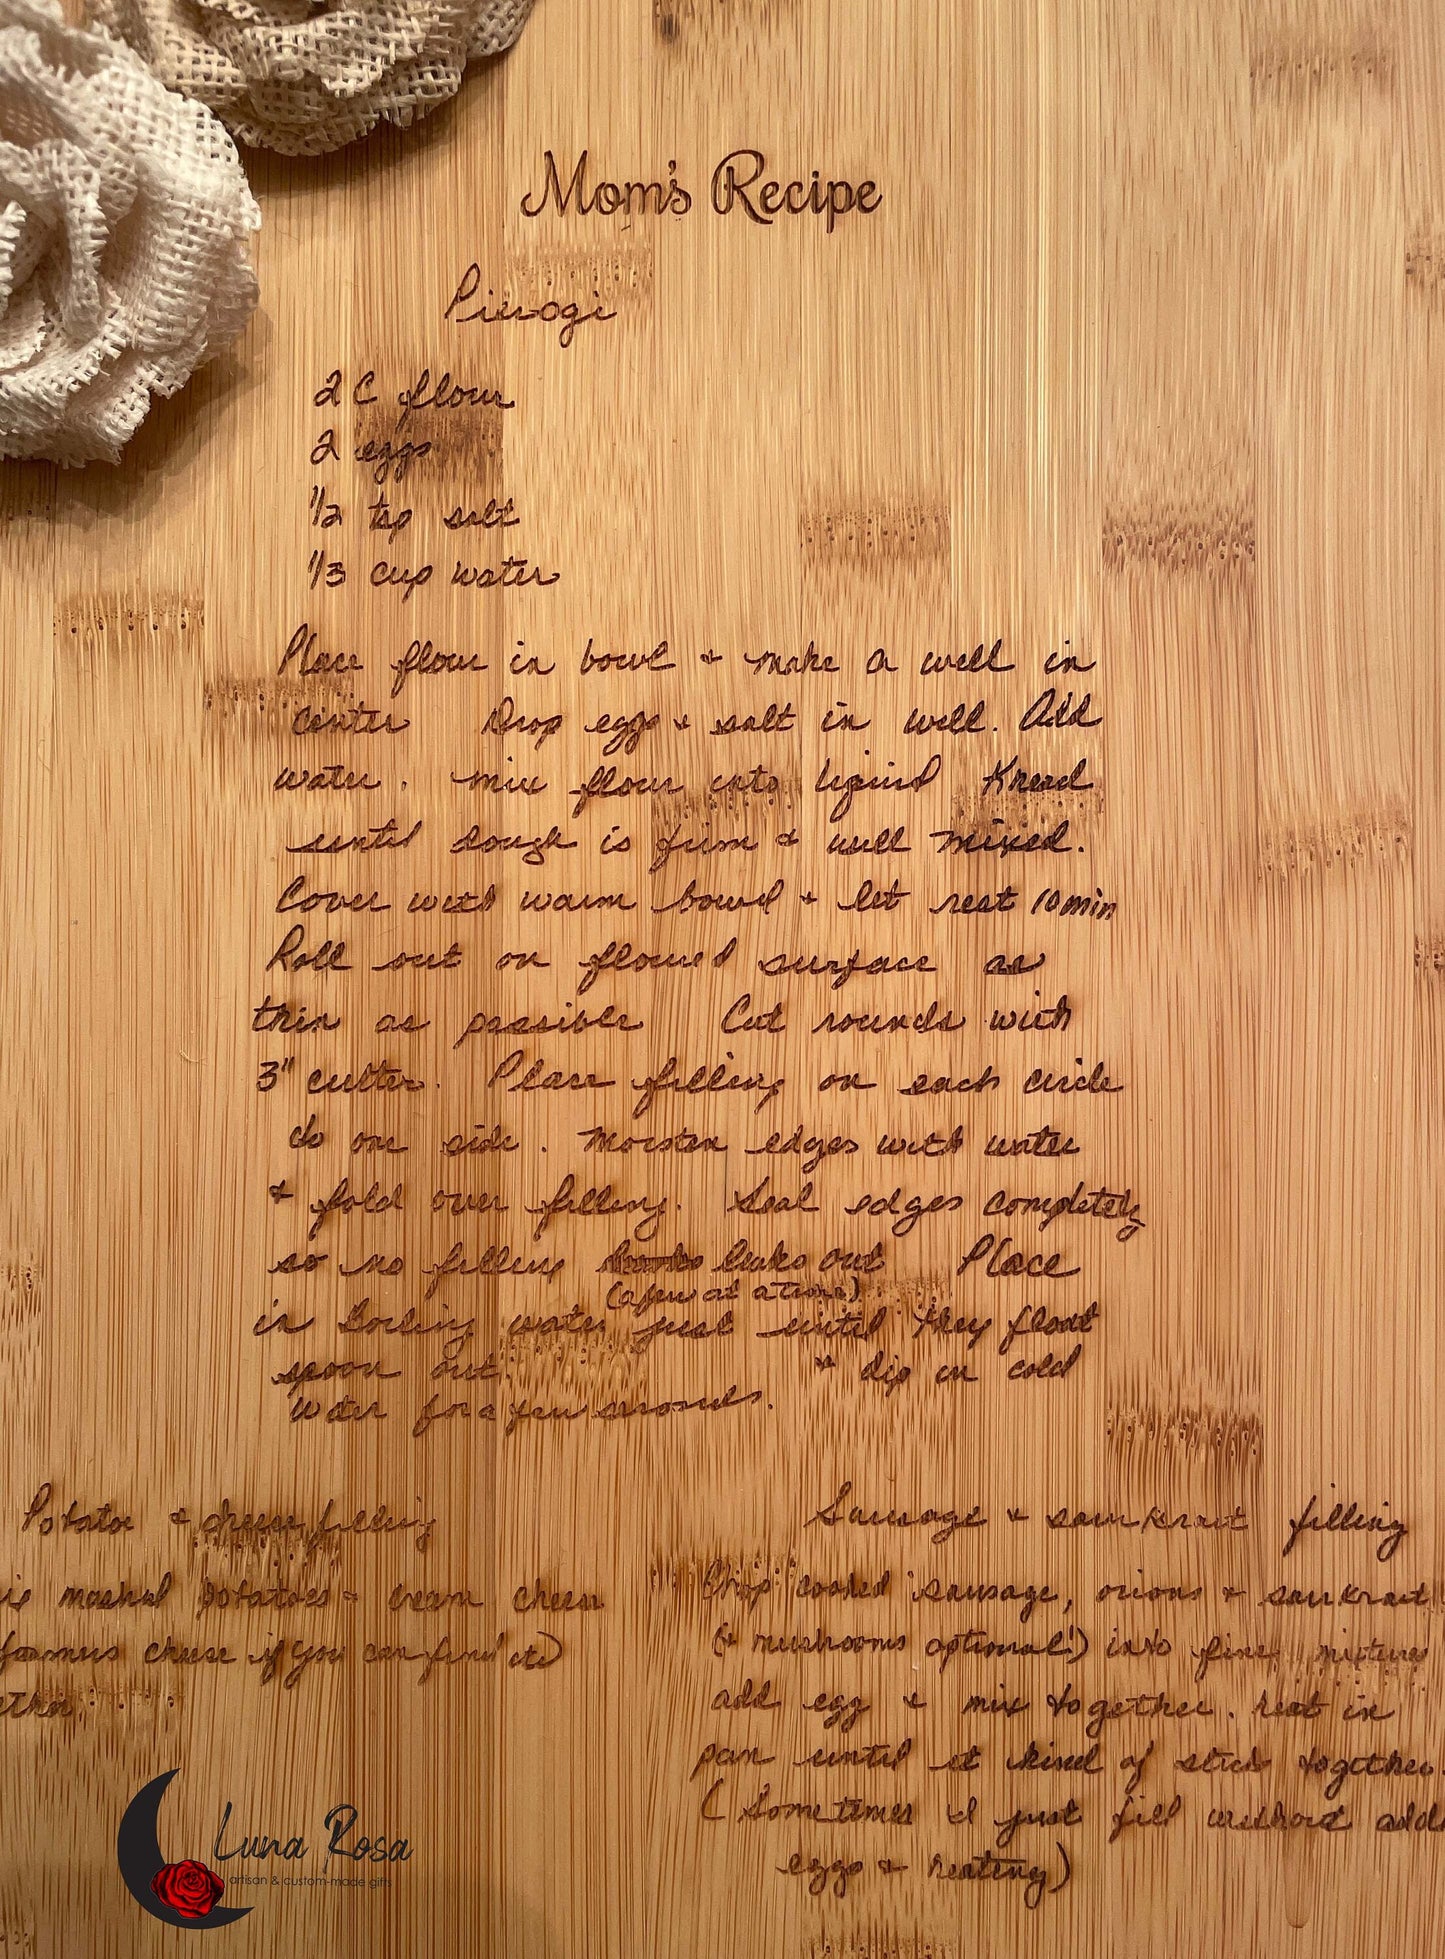 Mom's Recipe
Pierogi
2 C flour
2 eggs
1/2 tsp salt
1/3 cup water
Place flour in bowl + make a well in
center Drop eggs + salt in well. Add
water. mix flour into liquid Knead
until dough is firm + well mixed.
Cover with warm bowl + let rest 10 min
Roll out on floured surface as
thin as possible Cut rounds with
3" cutter. Place filling on each circle
to one side. Moisten edges with water
+ fold over filling. Seal edges completely
so no filling leaks out Place
(a few at a time)
in boiling water just until they float
spoon out. * dip in cold
water for a few seconds.
Potatoe + cheese filling
mashed potatoes + cream cheese
farmers cheese if you can find it)
Sausage + saurkraut filling
Chop cooked sausage, onions + saurkraut
(+ mushrooms optional!) into fine mixture
add egg + mix together. heat in
pan until it kind of sticks together.
(Sometimes I just fill without add
eggs + heating)
Luna Rosa
artisan & custom-made gifts